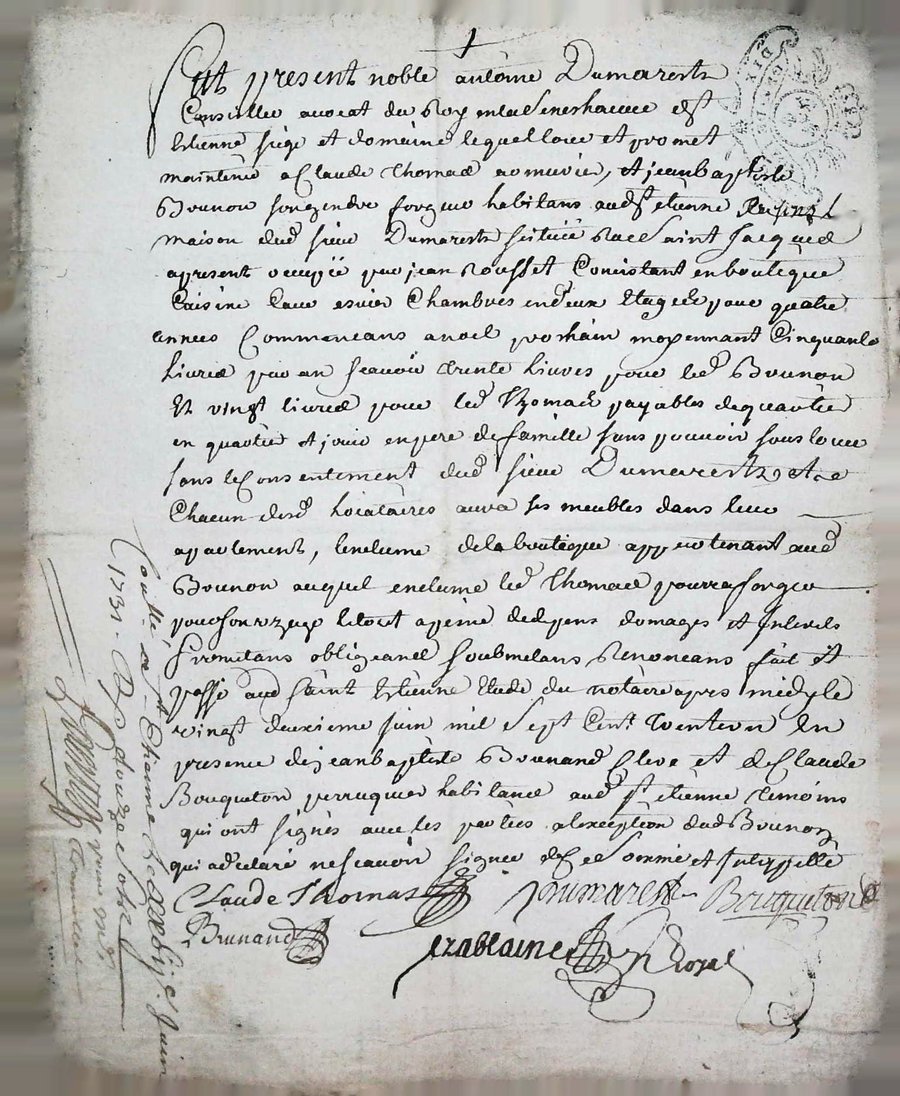 1
fut present noble antoine Dumarests
Conseiller avocat du Roy en la Seneshaucee dst
Estienne siege et domaine lequel loue et promet
maintenir a Claude Thomas armurier, et jean baptiste
Brunon son gendre forgeur habitans audt st etienne
maison dud sieur Dumarests scituée Rue Saint Jacques
apresent occupée par jean Rousset Consistant en boutique
Cuisine Cave esvier Chambres en deux Etages pour quatre
années Commencans a noel prochain moyennant Cinquante
Livres par an scavoir trente Livres pour led Brunon
Et vingt livres pour led Thomas payables de quartier
en quartier et jouir en pere de famille sans pouvoir souslouer
sans le Consentement dud sieur Dumarests, et
Chacun desd Locataires aura ses meubles dans leur
apartement, lenclume de la boutique appartenant aud
Brunon auquel enclume led Thomas pourra forger
pour son usage le tout a peine de depens domages et Interets
promettans obligeans soubmetans Renoncans fait et
passé aud Saint Estienne Etude du notaire apres midy le
vingt deuxieme juin mil Sept Cent trente un En
presence de jean baptiste Brunand Clerc et de Claude
Bouqueton perruquier habitans aud st etienne temoins
qui ont signés avec les parties a lexception dud Brunon
qui a declaré ne scavoir signer de Ce Sommé et Interpellé
Claude Thomas Dumarests Bouqueton
Brunand
ezablaine Royal
Contllé a st Etienne le juin
1731. R douze sols